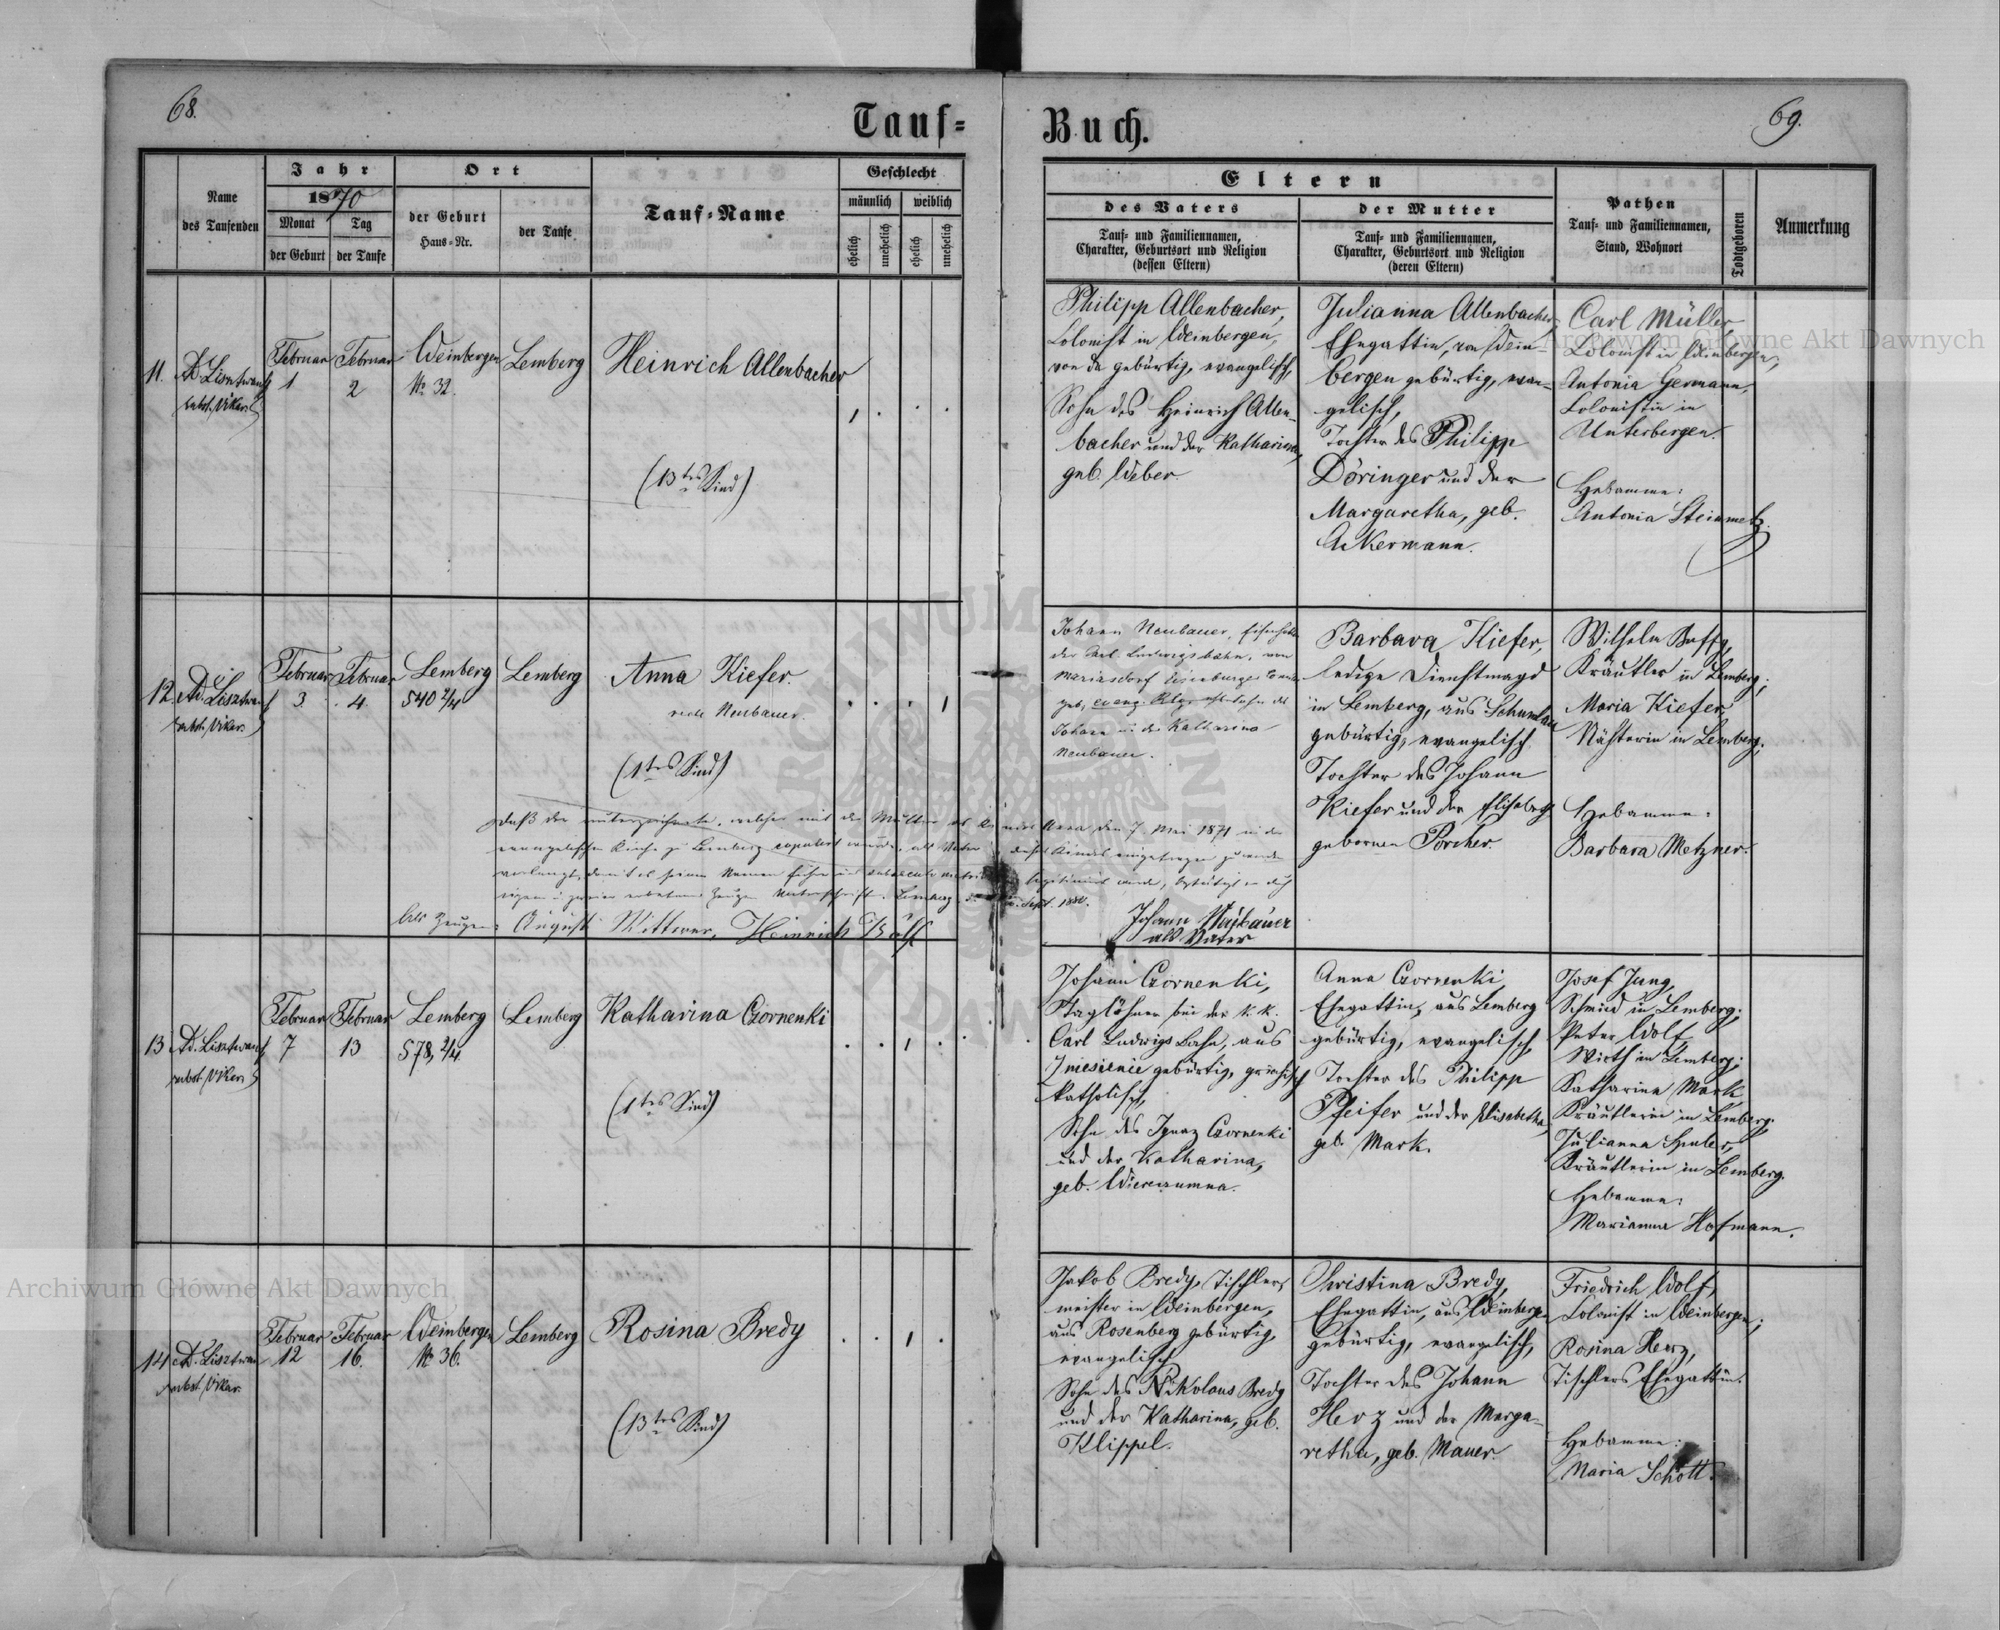 68.
Tauf-
Buch.
69.
Name
des Taufenden
Jahr
1870
Monat
der Geburt
Tag
der Taufe
Ort
der Geburt
Haus-Nr.
der Taufe
Tauf-Name
Geschlecht
männlich
weiblich
ehelich
unehelich
ehelich
unehelich
Eltern
des Vaters
Tauf- und Familiennamen,
Charakter, Geburtsort und Religion
(dessen Eltern)
der Mutter
Tauf- und Familiennamen,
Charakter, Geburtsort und Religion
(deren Eltern)
Pathen
Tauf- und Familiennamen,
Stand, Wohnort
Todtgeboren
Anmerkung
11.
Februar
1
Februar
2
Weinbergen
No 32.
Lemberg
Heinrich Allenbacher
(13tes Kind)
Philipp Allenbacher,
Colonist in Weinbergen,
von da gebürtig, evangelisch,
Sohn des Heinrich Allen-
bacher und der Katharina,
geb. Weber.
Julianna Allenbacher,
Ehegattin, von Wein-
bergen gebürtig, evan-
gelisch,
Tochter des Philipp
Döringer und der
Margaretha, geb.
Ackermann.
Carl Müller,
Colonist in Weinbergen;
Antonia Germann,
Colonistin in
Unterbergen.
Hebamme:
Antonia Steinmetz.
12.
Februar
3.
Februar
4.
Lemberg
540 2/4
Lemberg
Anna Kiefer.
recte Neubauer.
(1tes Kind)
Johann Neubauer,
der Carl Ludwigsbahn, von
Mariasdorf
geb., evang.
Johann u. der Katharina
Neubauer.
Barbara Kiefer,
ledige Dienstmagd
in Lemberg, aus
gebürtig, evangelisch
Tochter des Johann
Kiefer und der Elisabeth
gebornen Porcher.
Wilhelm
Kräutler in Lemberg;
Maria Kiefer,
Nähterin in Lemberg;
Hebamme:
Barbara Metzner.
daß der unterzeichnete, welcher mit der Mutter des Kindes Anna den 7 Mai 1871 in der
evangelischen Kirche zu Lemberg copuliert wurde, als Vater dieses Kindes eingetragen zu werden
verlangt, damit es seinen Namen führe
Sept. 1880.
Als Zeugen: August Wittwer, Heinrich
Johann Neubauer
als Vater
13
Februar
7
Februar
13
Lemberg
578 2/4
Lemberg
Katharina Czornenki
(1tes Kind)
Johann Czornenki,
Taglöhner bei der k. k.
Carl Ludwigs Bahn, aus
Zniesienie gebürtig, griechisch
katholisch,
Sohn des Ignaz Czornenki
und der Katharina,
geb.
Anna Czornenki
Ehegattin, aus Lemberg
gebürtig, evangelisch,
Tochter des Philipp
Pfeifer und der Elisabetha,
geb. Mark.
Josef Jung,
Schmied in Lemberg;
Peter Wolf
Wirth in Lemberg;
Katharina Mark
Kräutlerin in Lemberg;
Julianna Huber,
Kräutlerin in Lemberg.
Hebamme:
Marianna Hofmann.
14
Februar
12
Februar
16.
Weinbergen
No 36.
Lemberg
Rosina Bredy
(13tes Kind)
Jakob Bredy, Tischler-
meister in Weinbergen,
aus Rosenberg gebürtig,
evangelisch
Sohn des Nikolaus Bredy
und der Katharina, geb.
Klippel.
Christina Bredy,
Ehegattin, aus Weinbergen
gebürtig, evangelisch,
Tochter des Johann
Herz und der Marga-
retha, geb. Mauer.
Friedrich Wolf,
Colonist in Weinbergen;
Rosina Herz,
Tischlers Ehegattin.
Hebamme:
Maria Schott.
Archiwum Główne Akt Dawnych
Archiwum Główne Akt Dawnych